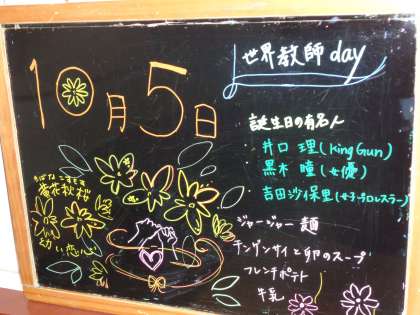 10月5日
世界教師day
誕生日の有名人
井口 理(King Gun)
黒木 瞳(女優)
吉田沙保里(女子プロレスラー)
きばなこすもす
黄花秋桜
幼い恋心
ジャージャー麺
チンゲンサイと卵のスープ
フレンチポテト
牛乳